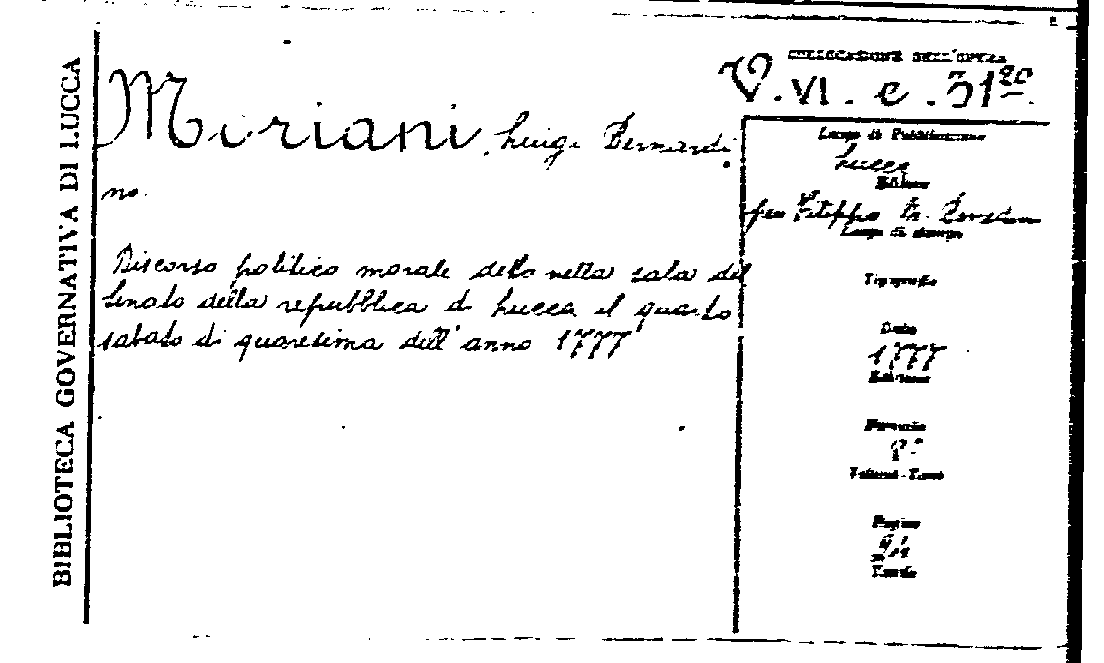 BIBLIOTECA GOVERNATIVA DI LUCCA
COLLOCAZIONE DELL'OPERA
V. VI. e. 31²⁰
Miriani, Luigi Bernardi
no.
Discorso politico morale detto nella sala del
Senato della repubblica di Lucca il quarto
sabato di quaresima dell'anno 1777
Luogo di Pubblicazione
Lucca
Editore
Filippo M.
Luogo di stampa
Tipografia
Data
1777
Edizione
Formato
8°
Volume - Tomo
Pagine
Tavole